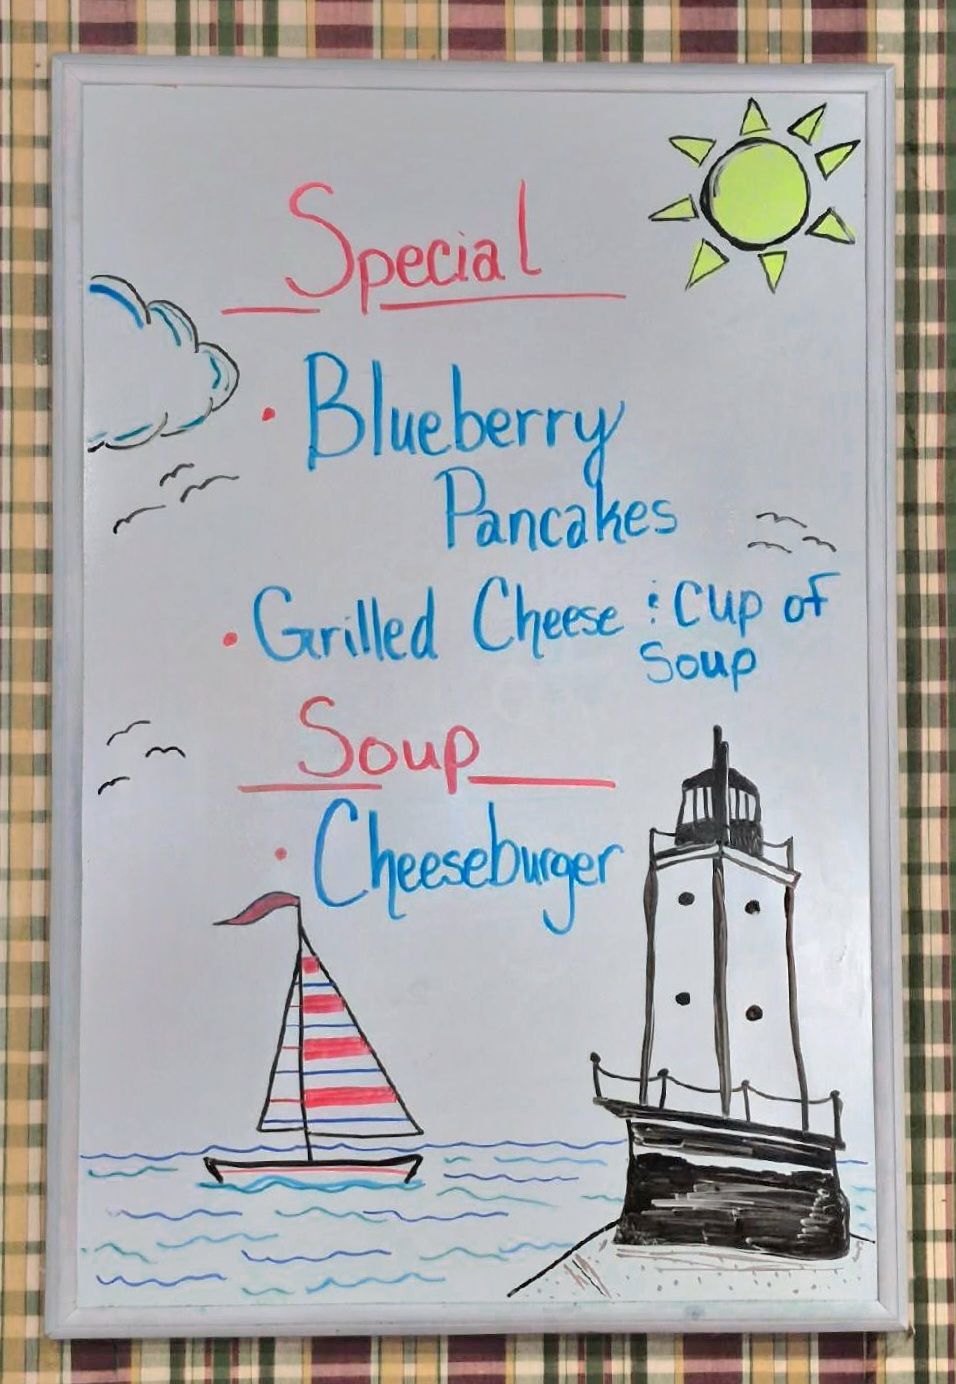 Special
• Blueberry
Pancakes
• Grilled Cheese & Cup of
Soup
Soup
• Cheeseburger